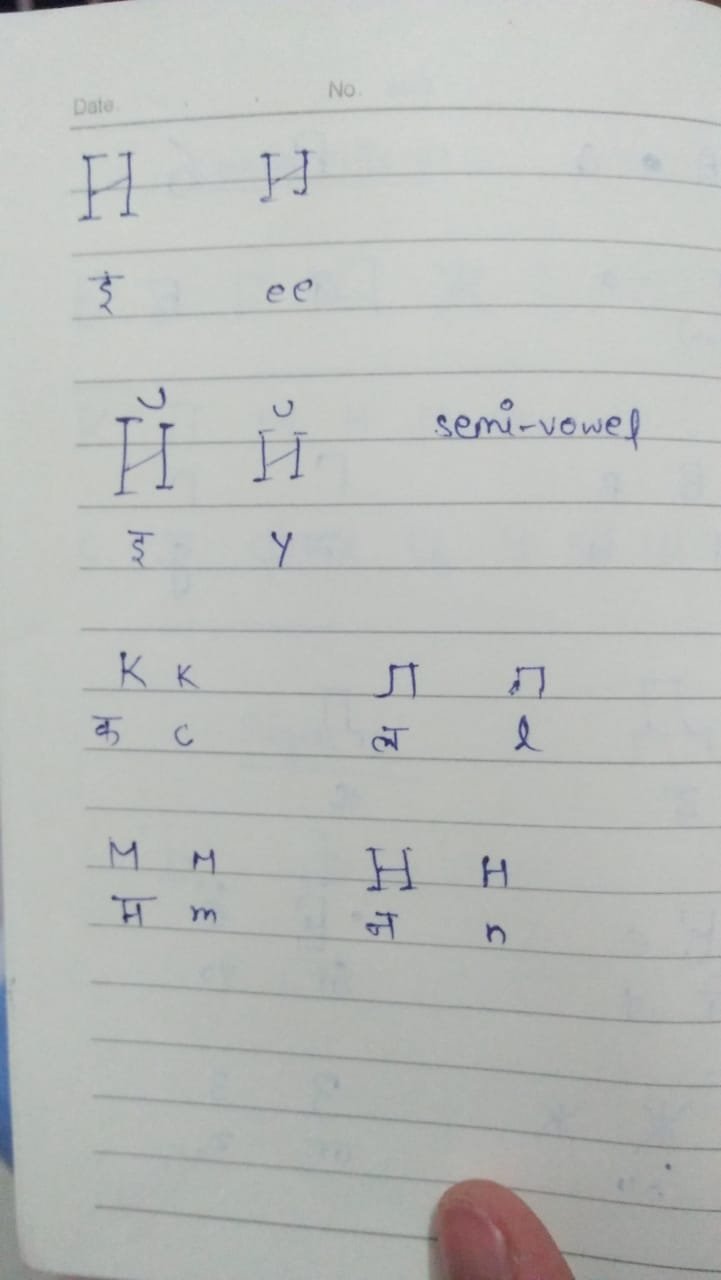 Date. No.
И и
ई ee
Й й semi-vowel
इ y
К к Л л
क c ल l
М м Н н
म m न n